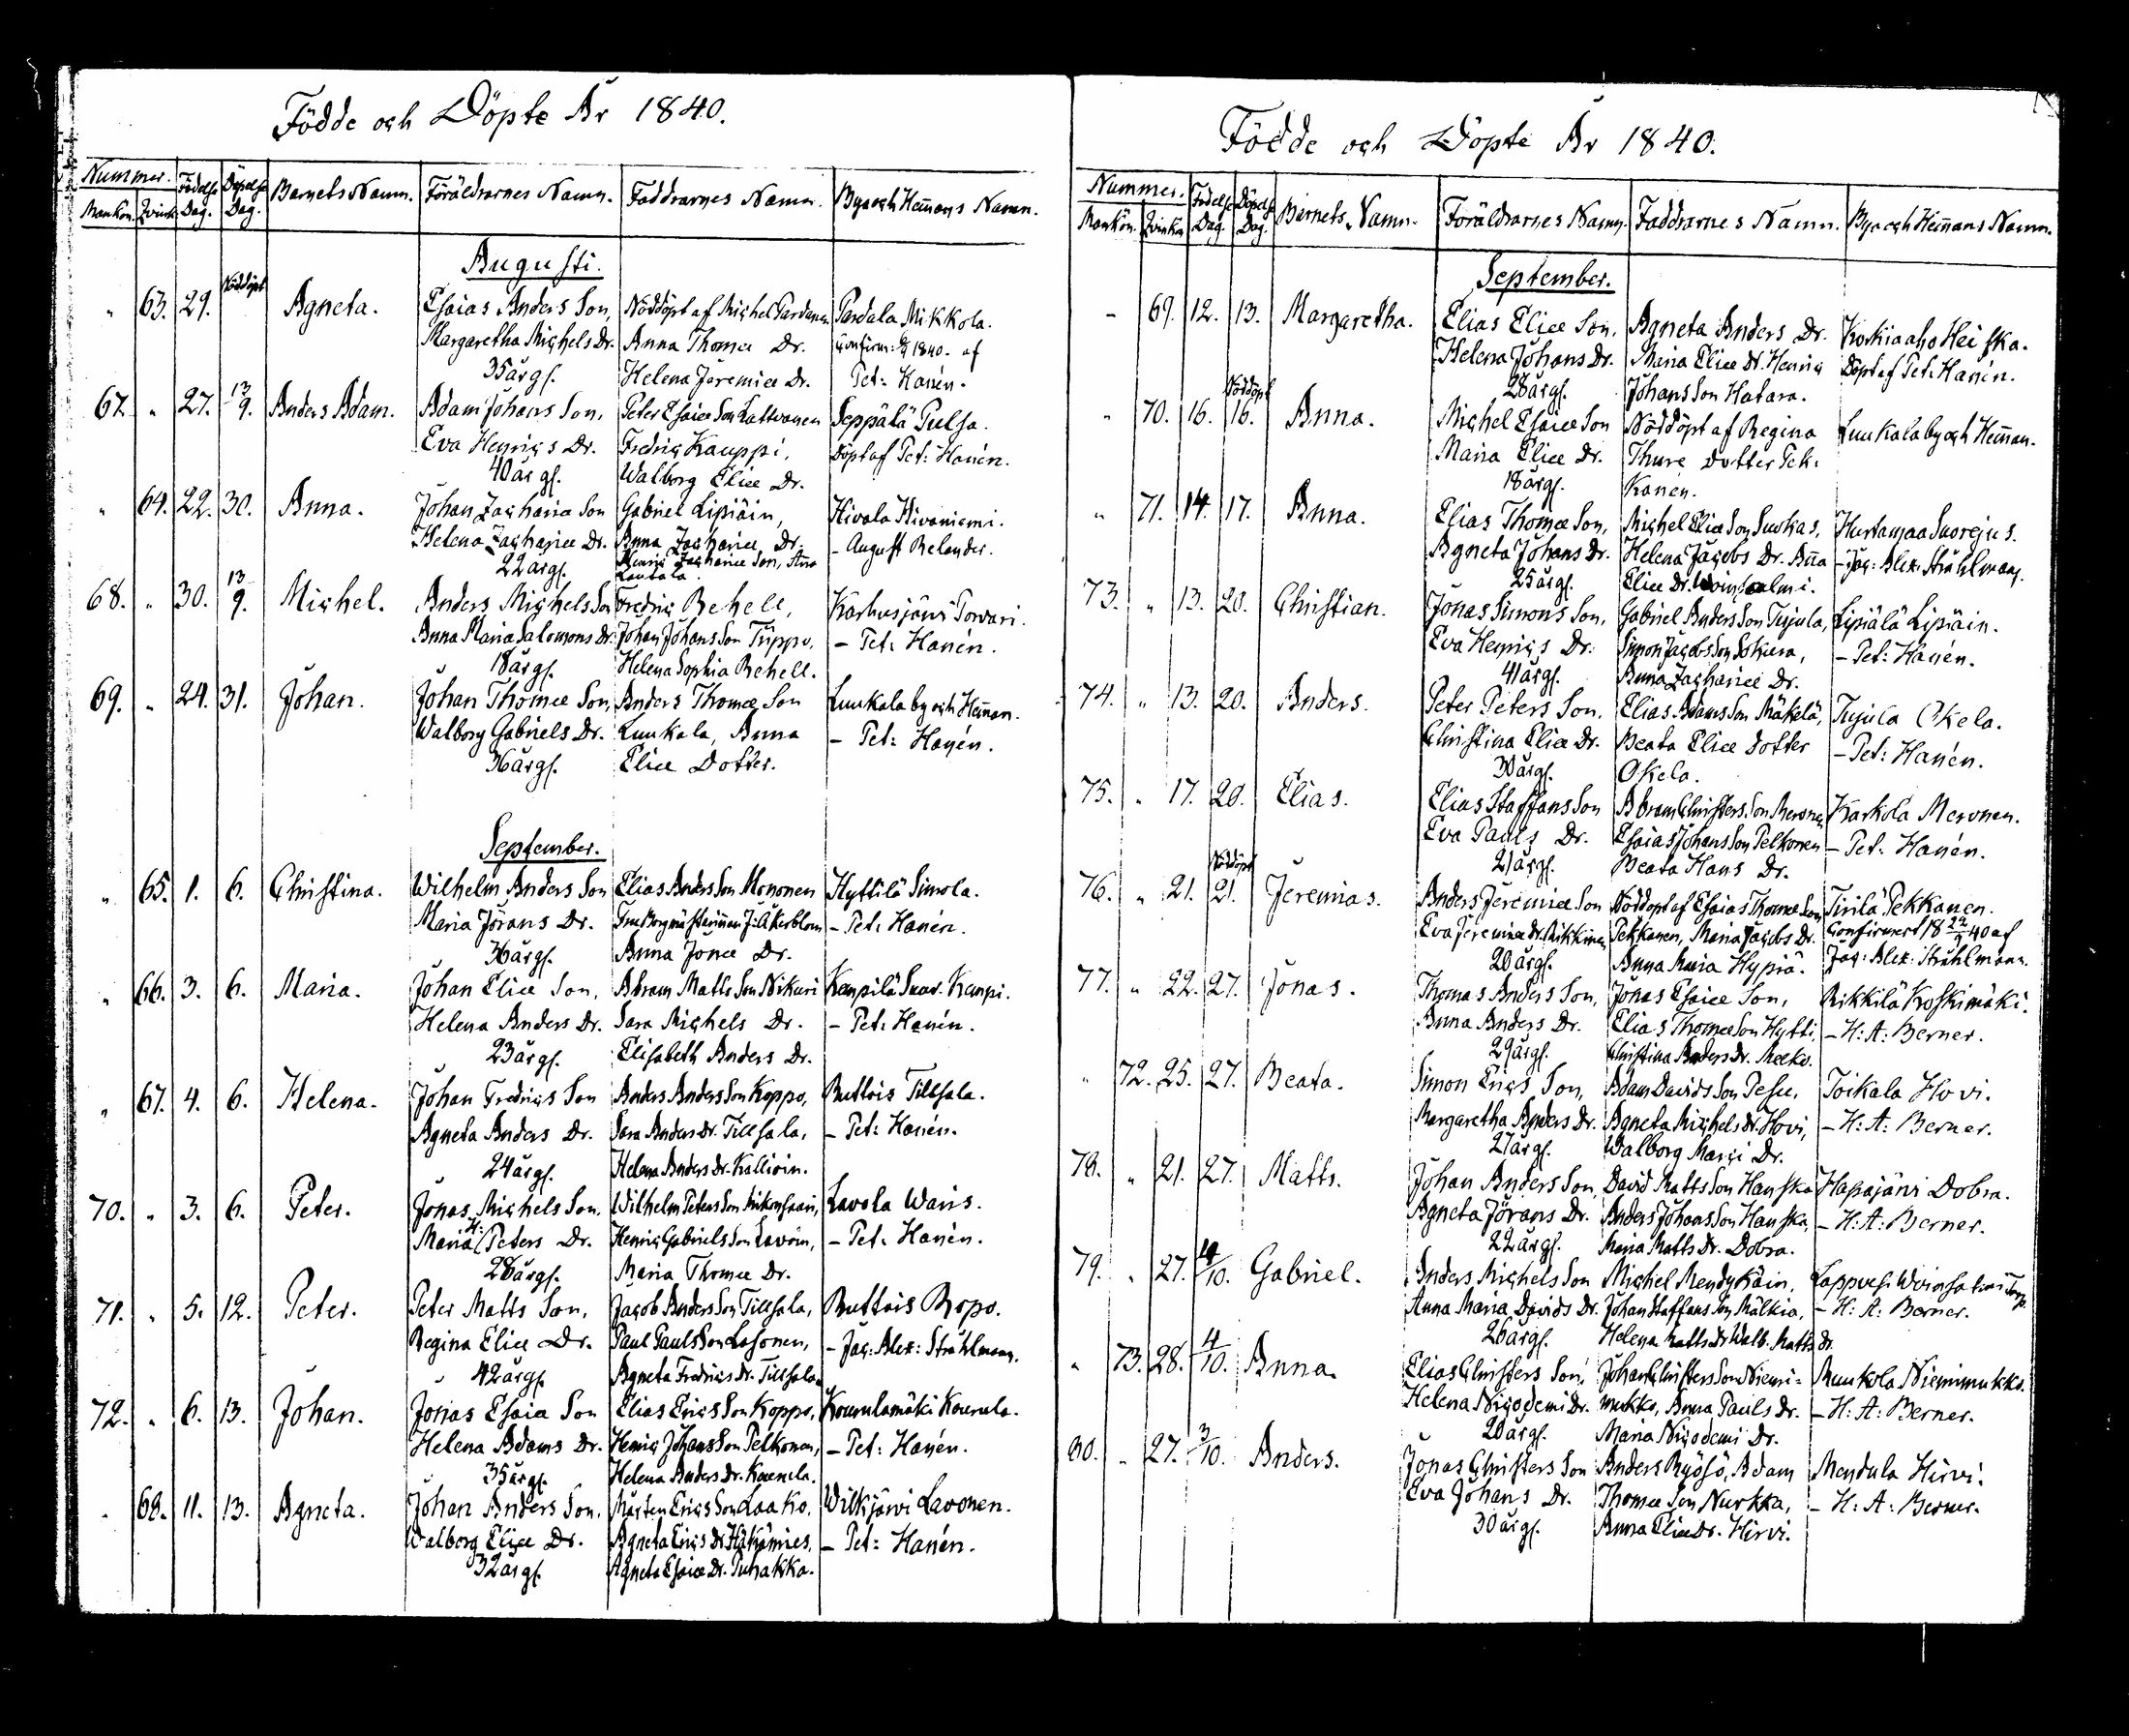 Födde och Döpte År 1840.
Nummer. Födelse Döpelse Barnets Namn. Föräldrarnes Namn. Faddrarnes Namn. By och Hemans Namn.
Mankön. Qvink. Dag. Dag.
Augusti.
" 63. 29. Nöddöpt Agneta. Esaias Anders Son, Nöddöpt af Michel Pardanen Pardala Mikkola.
Margaretha Michels Dr. Anna Thomæ Dr. 1840. af
35 årg. Helena Jeremiæ Dr. Pet: Hanén.
67. " 27. 13/9. Anders Adam. Adam Johans Son, Peter Esaiæ Son Lattvanen Seppälä Pulsa.
Eva Henrics Dr. Fredric Kauppi, Döpt af Pet: Hanén.
40 årg. Walborg Eliæ Dr.
" 64. 22. 30. Anna. Johan Zacharia Son Gabriel Lipiäin, Hivala Hivaniemi.
Helena Zachariæ Dr. Anna Zachariæ Dr. - August Relander.
22 årg. Henric Zachariæ Son, Anna
Lautala.
68. " 30. 13/9. Michel. Anders Michels Son Fredric Rehell, Karhusjärvi Torvari.
Anna Maria Salomons Dr. Johan Johans Son Tuppo, - Pet: Hanén.
18 årg. Helena Sophia Rehell.
69. " 24. 31. Johan. Johan Thomæ Son, Anders Thomæ Son Luukala by och Heman.
Walborg Gabriels Dr. Luukala, Anna - Pet: Hanén.
36 årg. Eliæ Dotter.
September.
" 65. 1. 6. Christina. Wilhelm Anders Son Elias Anders Son Mononen Hyttilä Simola.
Maria Jörans Dr. J: Åkerblom - Pet: Hanén.
36 årg. Anna Jonæ Dr.
" 66. 3. 6. Maria. Johan Eliæ Son, Abram Matts Son Nikuri Kempilä Suur-Kempi.
Helena Anders Dr. Sara Michels Dr. - Pet: Hanén.
23 årg. Elisabeth Anders Dr.
" 67. 4. 6. Helena. Johan Fredrics Son Anders Anders Son Koppo, Ruttois Tillsala.
Agneta Anders Dr. Sara Anders Dr. Tillsala, - Pet: Hanén.
24 årg. Helena Anders Dr. Kallioin.
70. " 3. 6. Peter. Jonas Michels Son. Wilhelm Peters Son Mikonsaari, Lavola Waris.
Maria H: Peters Dr. Henric Gabriels Son Lavoin, - Pet: Hanén.
28 årg. Maria Thomæ Dr.
71. " 5. 12. Peter. Peter Matts Son, Jacob Anders Son Tillsala, Ruttois Ropo.
Regina Eliæ Dr. Paul Pauls Son Lasonen, - Jac: Alex: Stråhlmann.
42 årg. Agneta Fredrics Dr. Tillsala.
72. " 6. 13. Johan. Jonas Esaiæ Son Elias Erics Son Koppo, Kourulamäki Kourula.
Helena Adams Dr. Henric Johans Son Pelkonen, - Pet: Hanén.
35 årg. Helena Anders Dr. Kourula.
" 68. 11. 13. Agneta. Johan Anders Son. Mårten Erics Son Laako, Wilkjärvi Lavonen.
Walborg Eliæ Dr. Agneta Erics Dr. Häkämies, - Pet: Hanén.
32 årg. Agneta Esaiæ Dr. Puhakka.
Födde och Döpte År 1840.
Nummer. Födelse Döpelse Barnets Namn. Föräldrarnes Namn. Faddrarnes Namn. By och Hemans Namn.
Mankön. Qvinkön. Dag. Dag.
September.
" 69. 12. 13. Margaretha. Elias Eliæ Son, Agneta Anders Dr. Korkiaaho Heiska.
Helena Johans Dr. Maria Eliæ Dr. Henric Döpt af Pet: Hanén.
28 årg. Johans Son Hatara.
" 70. 16. Nöddöpt 16. Anna. Michel Esaiæ Son Nöddöpt af Regina Luukala by och Heman.
Maria Eliæ Dr. Thure Dotter Pek-
18 årg. kanen.
" 71. 14. 17. Anna. Elias Thomæ Son, Michel Eliæ Son Suokas, Hurtanmaa Suorejus.
Agneta Johans Dr. Helena Jacobs Dr. Anna - Jac: Alex: Stråhlmann.
25 årg. Eliæ Dr.
73. " 13. 20. Christian. Jonas Simons Son, Gabriel Anders Son Tujula, Lipiälä Lipiäin.
Eva Henrics Dr. Simon Jacobs Son Sokura, - Pet: Hanén.
41 årg. Anna Zachariæ Dr.
74. " 13. 20. Anders. Peter Peters Son, Elias Adams Son Mäkelä, Tujula Okela.
Christina Eliæ Dr. Beata Eliæ dotter - Pet: Hanén.
30 årg. Okela.
75. " 17. 20. Elias. Elias Staffans Son Abram Christers Son Meronen Karkola Meronen.
Eva Pauls Dr. Esaias Johans Son Pelkonen - Pet: Hanén.
21 årg. Beata Hans Dr.
76. " 21. Nöddöpt 21. Jeremias. Anders Jeremiæ Son Nöddöpt af Esaias Thomæ Son Tirilä Pekkanen.
Eva Jeremiæ Dr. Mikkinen Pekkanen, Maria Jacobs Dr. Confirmert 18 22/9 40 af
20 årg. Anna Maria Hypiä. Jac: Alex: Stråhlmann.
77. " 22. 27. Jonas. Thomas Anders Son, Jonas Esaiæ Son, Rikkilä Koskimäki.
Anna Anders Dr. Elias Thomæ Son Hytti, - H: A: Berner.
29 årg. Christina Anders Dr. Meeko.
" 72. 25. 27. Beata. Simon Erics Son, Adam Davids Son Pesu, Toikala Hovi.
Margaretha Anders Dr. Agneta Michels Dr. Hovi, - H: A: Berner.
27 årg. Walborg Marci Dr.
78. " 21. 27. Matts. Johan Anders Son, David Matts Son Hanska Hapajärvi Dobra.
Agneta Jörans Dr. Anders Johans Son Hanska, - H: A: Berner.
22 årg. Maria Matts Dr. Dobra.
79. " 27. 4/10. Gabriel. Anders Michels Son Michel Mendykäin, Lappvesi Torp.
Anna Maria Davids Dr. Johan Staffans Son Mälkiä, - H: A: Berner.
26 årg. Helena Matts Dr. Walb. Matts Dr.
" 73. 28. 4/10. Anna. Elias Christers Son, Johan Christers Son Niemi- Muukola Niemimukko.
Helena Nicodemi Dr. mukko, Anna Pauls Dr. - H: A: Berner.
20 årg. Maria Nicodemi Dr.
80. " 27. 3/10. Anders. Jonas Christers Son Anders Ryösö, Adam Mendula Hirvi.
Eva Johans Dr. Thomæ Son Nurkka, - H: A: Berner.
30 årg. Anna Eliæ Dr. Hirvi.